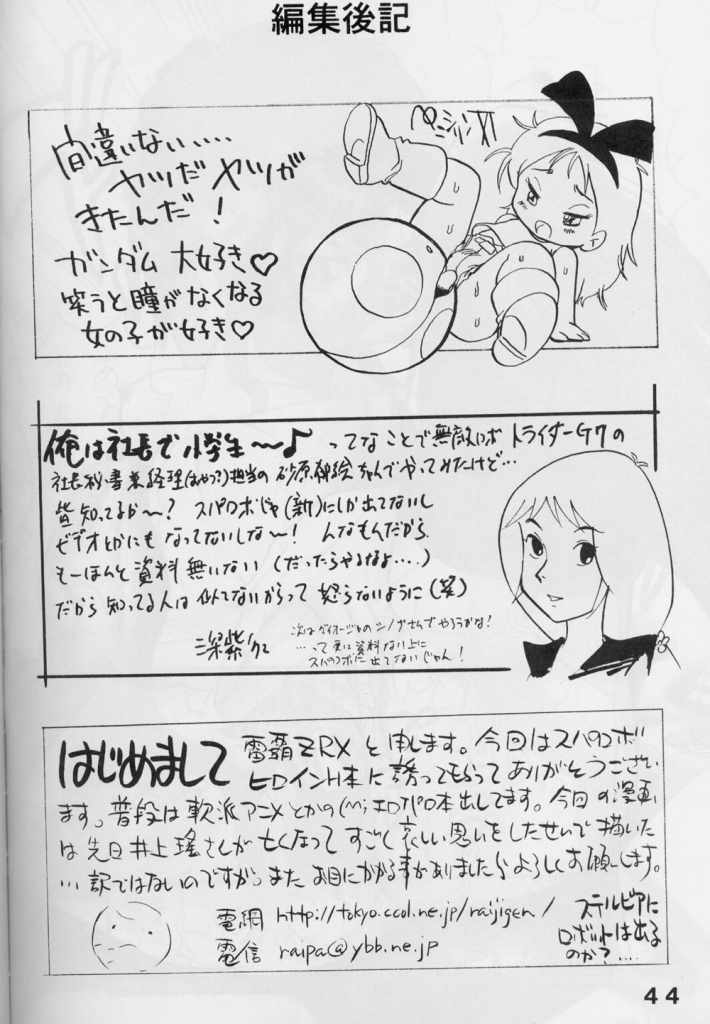 編集後記
間違いない....
ヤツだ ヤツが
きたんだ!
ガンダム 大好き♡
笑うと瞳がなくなる
女の子が好き♡
俺は社長で小学生〜〜♪ ってなことで無敵ロボ トライダーG7の
社長秘書兼経理(おやつ?)担当の 砂原郁絵ちゃんでやってみたけど…
皆知ってるか〜? スパロボじゃ(新)にしか出てないし
ビデオとかにもなってないしな〜! んなもんだから
もーほんと資料無いない (だったらやるなよ....)
だから 知ってる人は 似てないからって 怒らないように(笑)
深紫
次はダイオージャのシノブさんでやろうかな!
…って更に資料ない上に
スパロボに出てないじゃん!
はじめまして 電覇ZRXと申します。今回はスパロボ
ヒロインH本に誘ってもらってありがとうござい
ます。普段は軟派アニメとかの エロパロ本出してます。今回の漫画
は先日井上瑤さんが亡くなってすごく哀しい思いをしたせいで描いた
…訳ではないのですが。またお目にかかる事がありましたらよろしくお願いします。
電網 http://tokyo.cool.ne.jp/raijigen/
電信 raipa@ybb.ne.jp
ステルビアに
ロボットは出る
のか?....
44